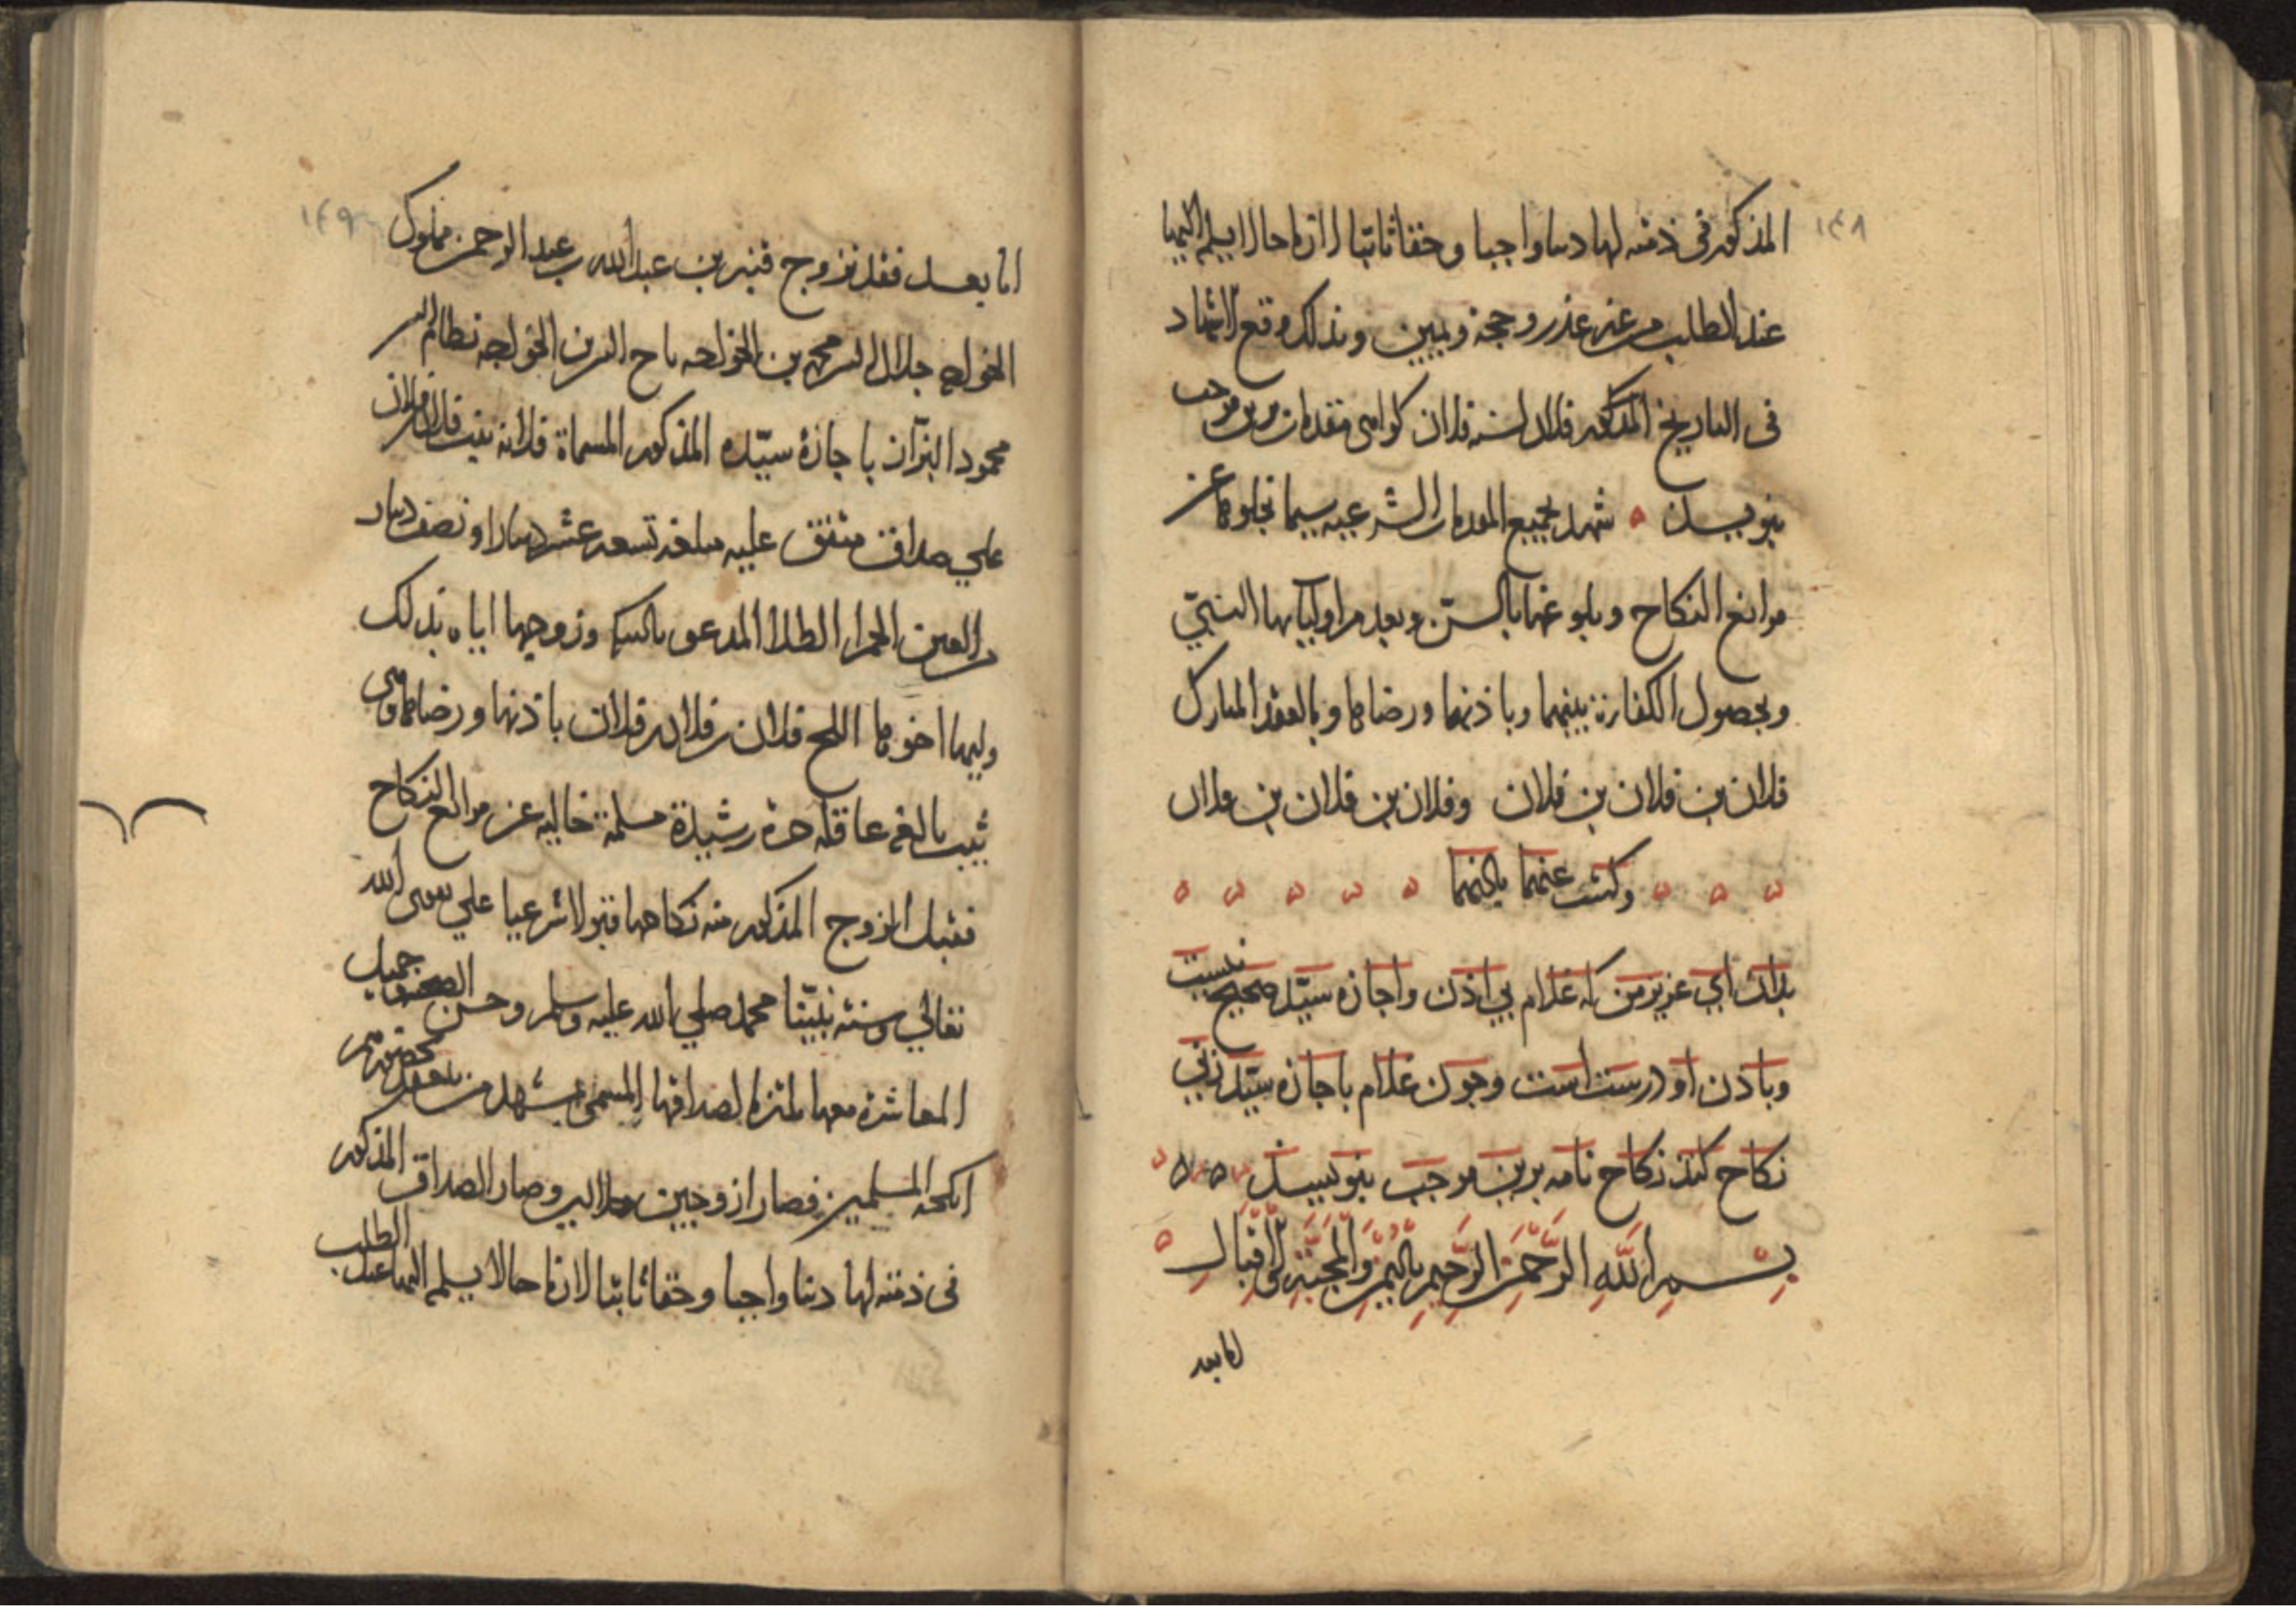 ١٤٨
المذكور في ذمته لها دينا واجبا وحقا ثابتا لازما حالا يسلم اليها
عند الطلب من غير عذر وحجة ويمين وبذلك وقع الاشهاد
في التاريخ المذكور فلان لسنه فلان كواهى مقدمات برين موجب
بنويسد شهد بجميع المقدمات الشرعيه سيما بخلوها عن
موانع النكاح وبلوغها بالسن وبعد من اوليآيها النسبيّ
وبحصول الكفاءة بينهما وباذنهما ورضاها وبالعقد المبارك
فلان بن فلان بن فلان وفلان بن فلان بن فلان
وكتبت عنهما باذنهما
بدانك اي عزيز من كه غلام بي اذن واجازه سيّد صحيح نيست
وباذن او درست است وچون غلام باجازه سيّد زني
نكاح كند نكاح نامه برين موجب بنويسد
بسم الله الرحمن الرحيم باليمن والمحبة والاقبال
اما بعد
١٤٩
اما بعد فقد تزوج قنبر بن عبد الله بن عبد الرحمن مملوك
الخواجه جلال الدين محمد بن الخواجه تاج الدين بن الخواجه نظام الدين
محمود البزّان باجازة سيّده المذكور المسماة فلانه بنت فلان بن فلان
علي صداق متفق عليه مبلغه تسعه عشر دينارا ونصف دينار
من العين الحمرا الطلا المدعو بالسكه وزوجها اياه بذلك
وليها اخوها اللح فلان بن فلان بن فلان باذنها ورضاها وهي
ثيب بالغه عاقله حرة رشيدة مسلمة خاليه عن موانع النكاح
فقبل الزوج المذكور منه نكاحها قبولا شرعيا علي تقوى الله
تعالي وسنة نبيّنا محمد صلي الله عليه وسلم وحسن الصحبه وجميل
المعاشرة معها ملتزما لصداقها المسمى بمشهد من يعقد بحضورهم
انكحه المسلمين فصارا زوجين حلالين وصار الصداق المذكور
في ذمته لها دينا واجبا وحقا ثابتا لازما حالا يسلم اليها عند الطلب